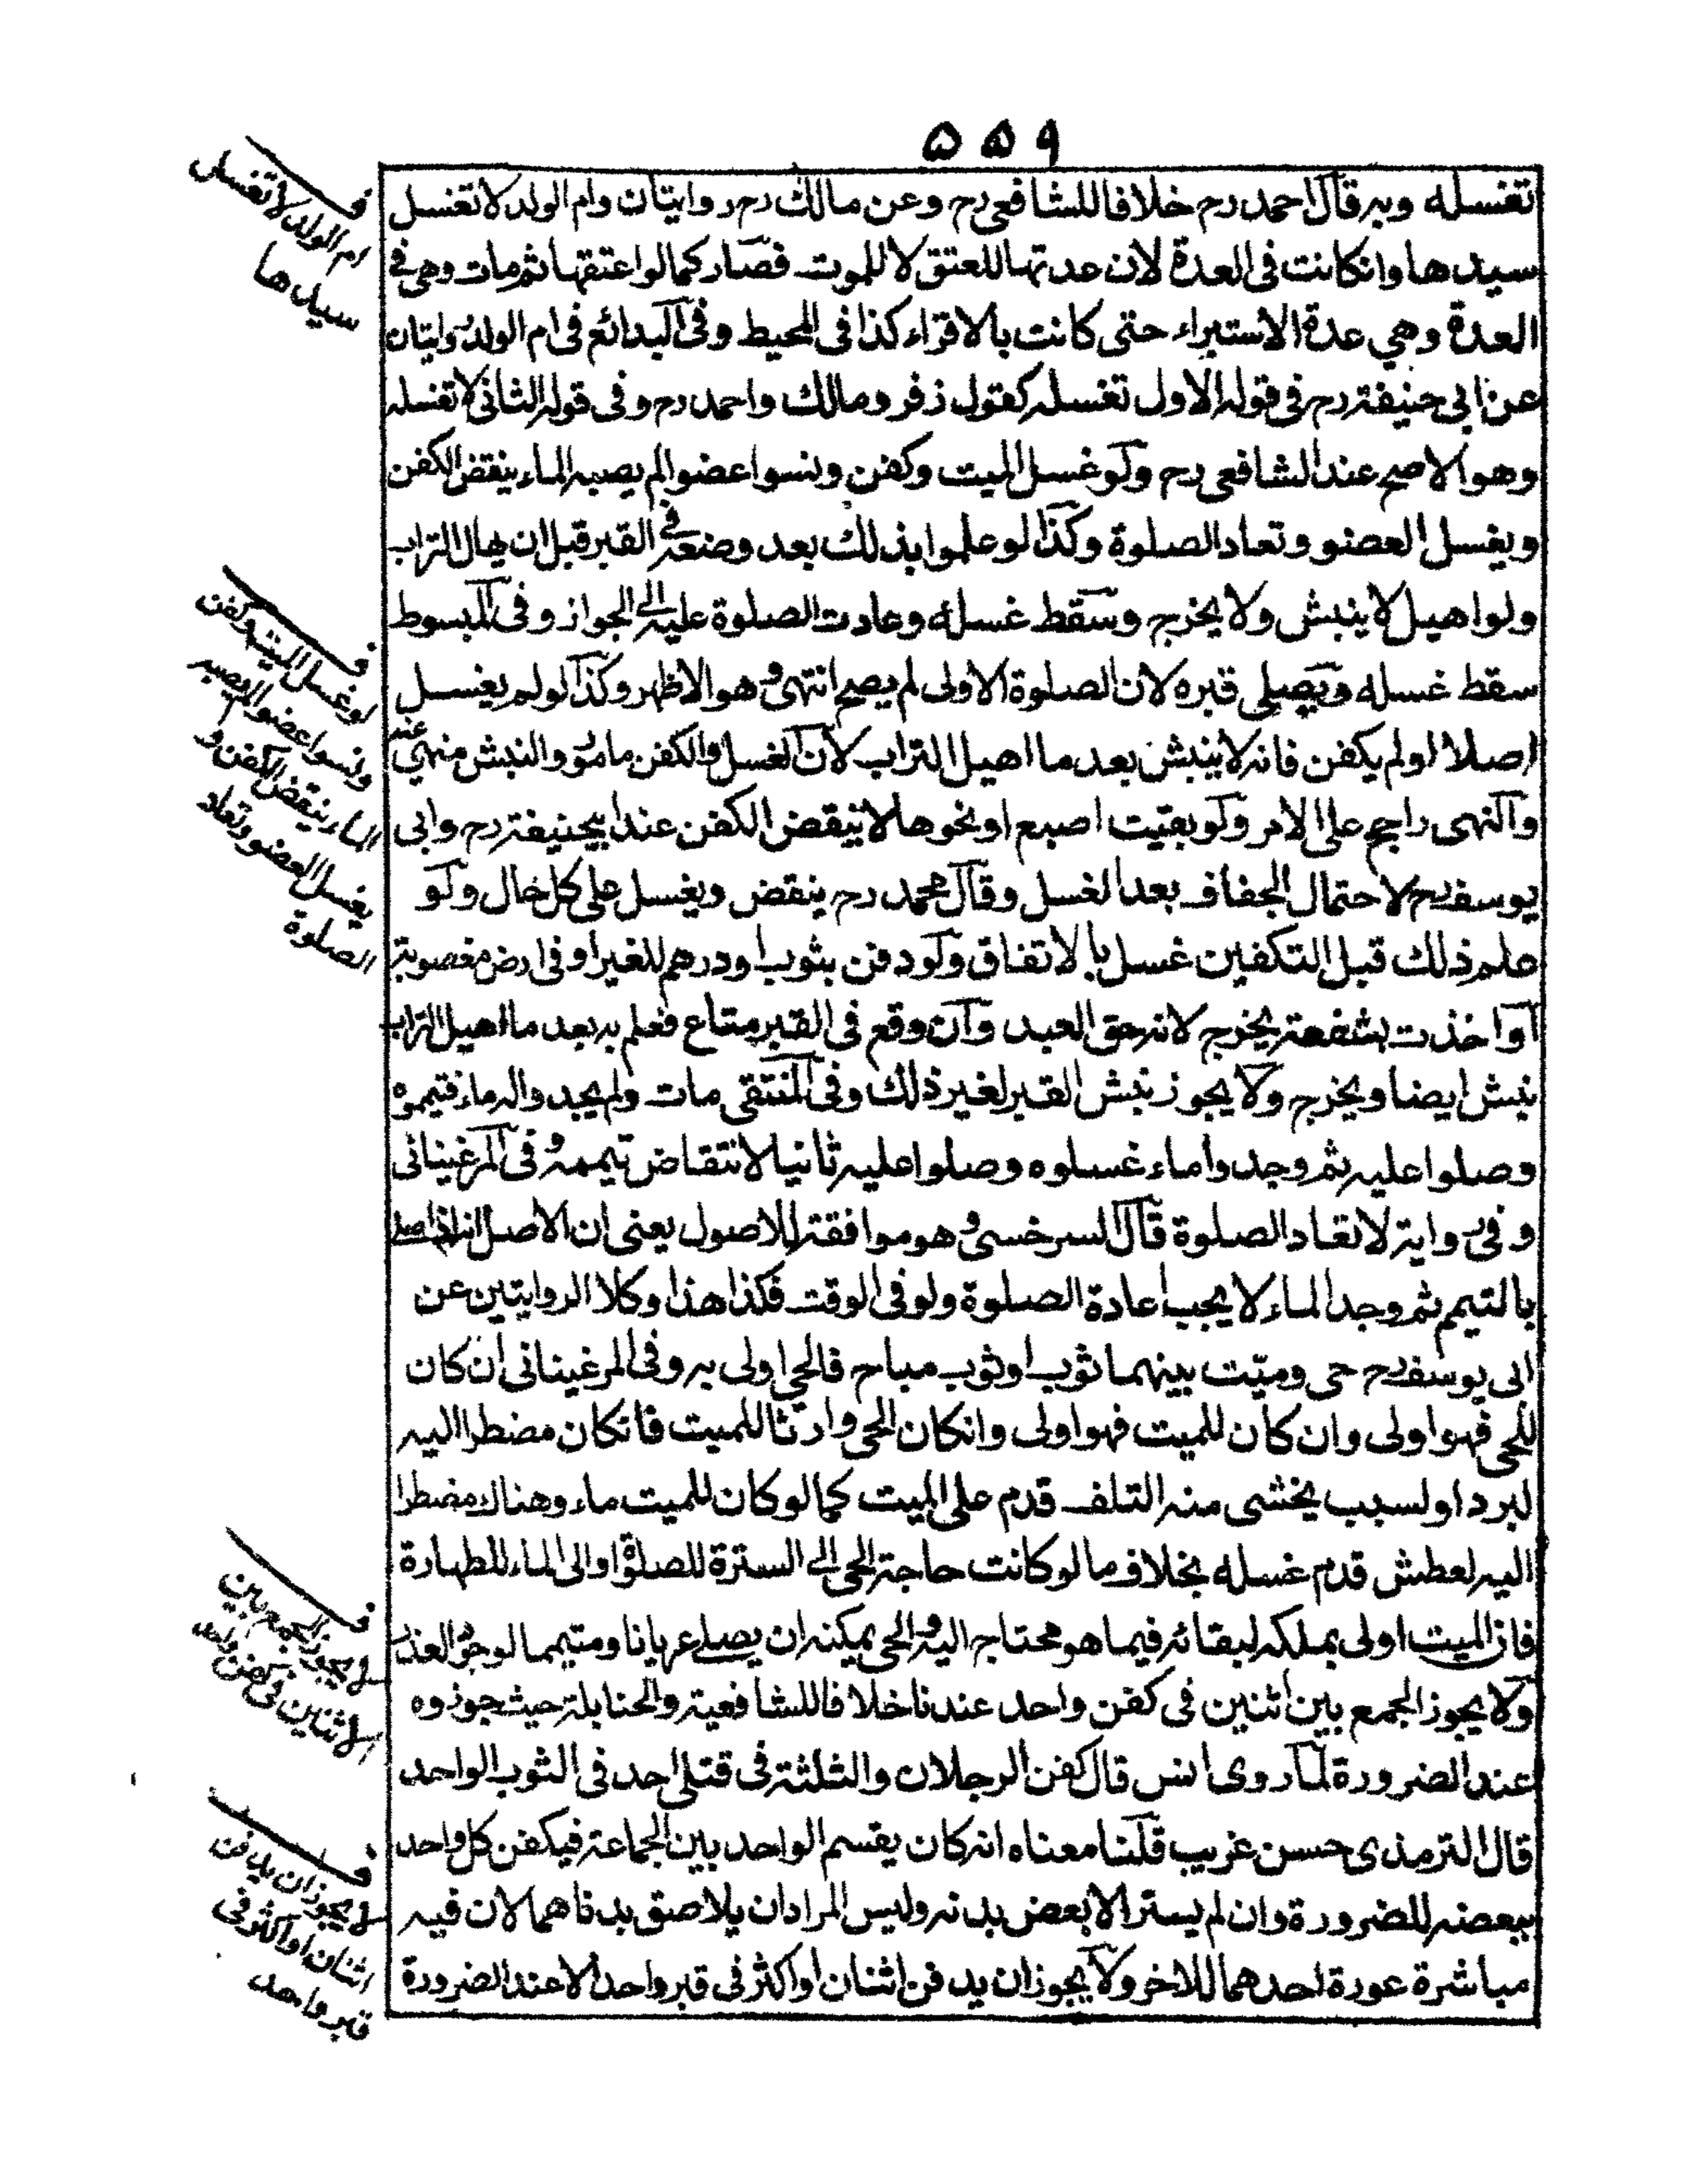 ٥٥٩
تغسله وبه قال احمد رح خلافا للشافعى رح وعن مالك رح روايتان وام الولد لا تغسل
سيدها وانكانت فى العدة لان عدتها للعتق لا للموت فصار كما لو اعتقها ثم مات وهى فى
العدة وهي عدة الاستبراء حتى كانت بالاقراء كذا فى المحيط وفى البدائع فى ام الولد روايتان
عن ابى حنيفة رح فى قوله الاول تغسله كقول زفر ومالك واحمد رح وفى قوله الثانى لا تغسله
وهو الاصح عند الشافعى رح ولو غسل الميت وكفن ونسوا عضوا لم يصبه الماء ينقض الكفن
ويغسل العضو وتعاد الصلوة وكذا لو علموا بذلك بعد وضعه فى القبر قبل ان يهال التراب
ولو اهيل لا ينبش ولا يخرج وسقط غسله وعادت الصلوة عليه الى الجواز وفى المبسوط
سقط غسله ويصلى قبره لان الصلوة الاولى لم يصح انتهى وهو الاظهر وكذا لو لم يغسل
اصلا او لم يكفن فانه لا ينبش بعد ما اهيل التراب لان الغسل والكفن مامور والنبش منهي عنه
والنهى راجح على الامر ولو بقيت اصبع او نحوها لا ينقض الكفن عند ابيحنيفة رح وابى
يوسف رح لاحتمال الجفاف بعد الغسل وقال محمد رح ينقض ويغسل على كل حال ولو
علم ذلك قبل التكفين غسل بالاتفاق ولو دفن بثوب او درهم للغير او فى ارض مغصوبة
او اخذت بشفعة يخرج لانه حق العبد وان وقع فى القبر متاع فعلم به بعد ما اهيل التراب
نبش ايضا ويخرج ولا يجوز نبش القبر لغير ذلك وفى المنتقى مات ولم يجدوا له ماء فتيموه
وصلوا عليه ثم وجدوا ماء غسلوه وصلوا عليه ثانيا لانتقاض تيممه وفى المرغينانى
وفى رواية لا تعاد الصلوة قال السرخسى وهو موافقة للاصول يعنى ان الاصل انه اذا صلى
بالتيمم ثم وجد الماء لا يجب اعادة الصلوة ولو فى الوقت فكذا هذا وكلا الروايتين عن
ابى يوسف رح حى وميّت بينهما ثوب او ثوب مباح فالحى اولى به وفى المرغينانى ان كان
للحى فهو اولى وان كان للميت فهو اولى وانكان الحى وارثا للميت فانكان مضطرا اليه
لبرد او لسبب يخشى منه التلف قدم على الميت كما لو كان للميت ماء وهناك مضطرا
اليه لعطش قدم غسله بخلاف ما لو كانت حاجة الحى الى السترة للصلوة او الى الماء للطهارة
فان الميت اولى بملكه لبقائه فيما هو محتاج اليه والحى يمكنه ان يصلى عريانا ومتيمما لوجود العذر
ولا يجوز الجمع بين اثنين فى كفن واحد عندنا خلافا للشافعية والحنابلة حيث جوزوه
عند الضرورة لما روى انس قال كفن الرجلان والثلثة فى قتلى احد فى الثوب الواحد
قال الترمذى حسن غريب قلنا معناه انه كان يقسم الواحد بين الجماعة فيكفن كل واحد
ببعضه للضرورة وان لم يستر الا بعض بدنه وليس المراد ان يلاصق بدناهما لان فيه
مباشرة عورة احدهما للاخر ولا يجوز ان يدفن اثنان او اكثر فى قبر واحد الا عند الضرورة
ف
ام الولد لا تغسل
سيدها
ف
لو غسل الميت وكفن
ونسوا عضوا لم يصبه
الماء ينقض الكفن و
يغسل العضو وتعاد
الصلوة
ف
لا يجوز الجمع بين
الاثنين فى كفن واحد
ف
لا يجوز ان يدفن
اثنان او اكثر فى
قبر واحد